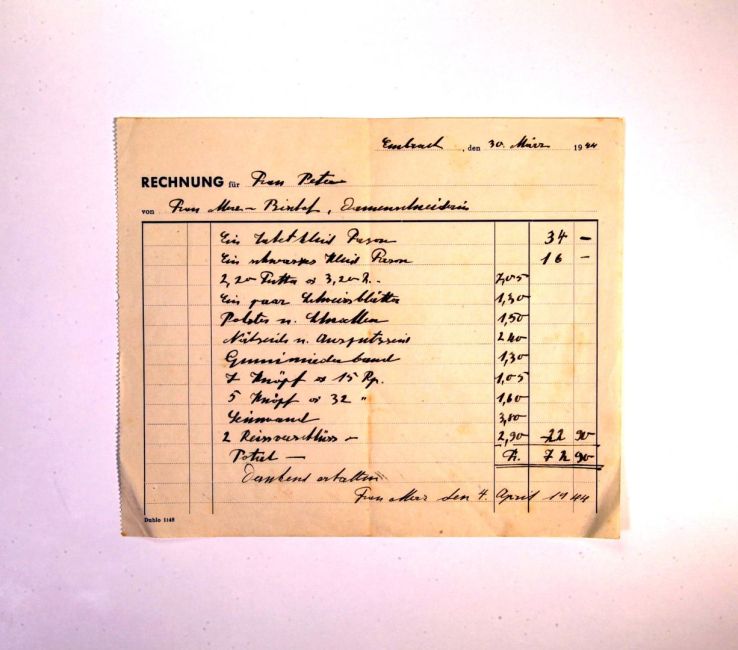 Embrach, den 30. März 1944
RECHNUNG für Frau Peter
von Frau Merz-Bischof, Damenschneiderin
Ein Jaketkleid Façon 34 —
Ein schwarzes Kleid Façon 16 —
2,20 Futter à 3,20 Fr. 7,05
Ein paar Schweissblätter 1,30
Polster u. Schnallen 1,50
Nähseide u. Ausputzseide 2 40
Gummimiederband 1,30
7 Knöpf à 15 Rp. 1,05
5 Knöpf à 32 " 1,60
Leinwand 3,80
2 Reissverschlüss — 2,90 22 90
Total — Fr. 72 90
Dankend erhalten
Frau Merz den 4. April 1944
Duhlo 1148